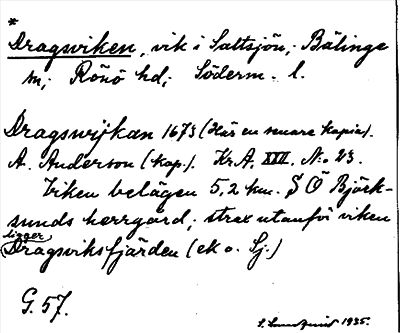 *
Dragsviken, vik i Saltsjön, Bälinge
sn, Rönö hd, Söderm. l.
Dragswijkan 1673 (Här en senare kopia).
A. Anderson (kop.). Kr.A. XXII. N:o 23.
Viken belägen 5,2 km. S Ö Björk-
sunds herrgård; strax utanför viken
ligger
Dragsviksfjärden (ek o. Sj.)
G. 57.
1935.